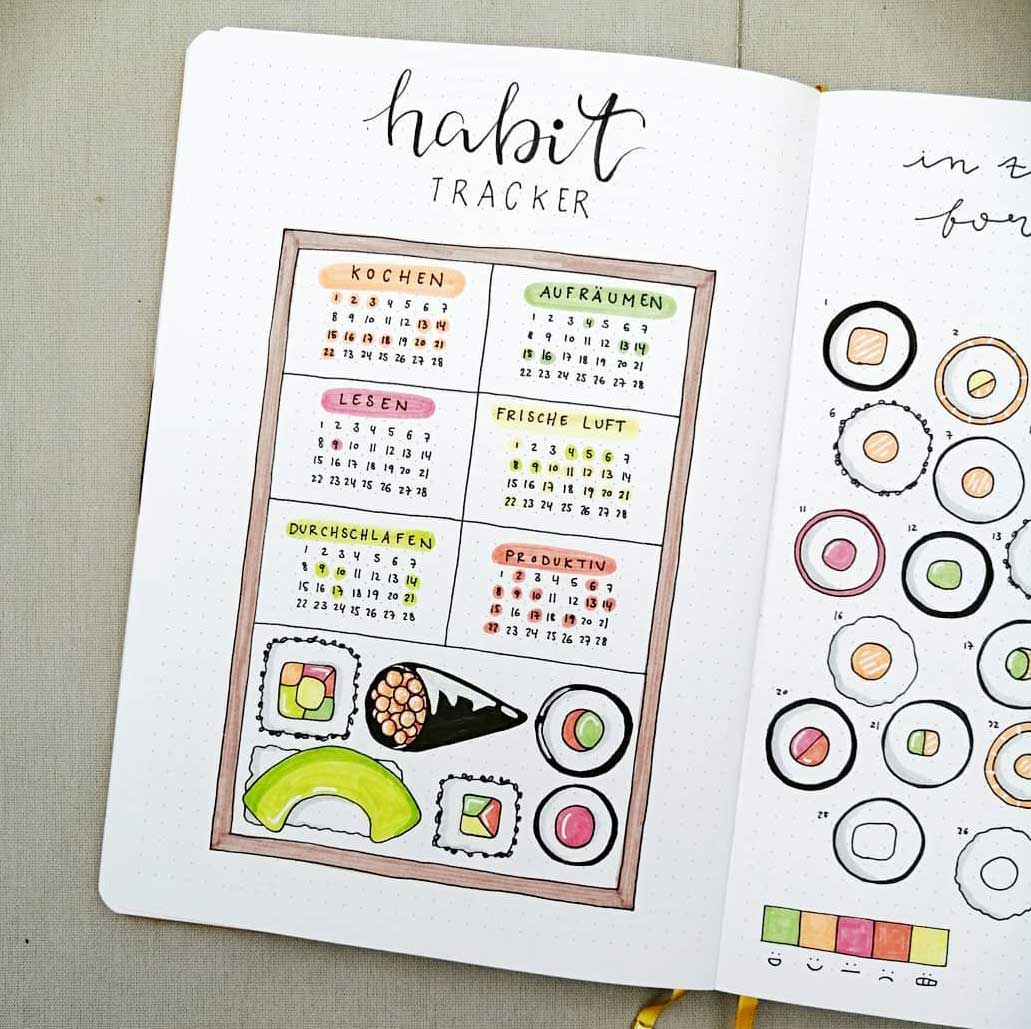 habit
TRACKER
KOCHEN
1 2 3 4 5 6 7
8 9 10 11 12 13 14
15 16 17 18 19 20 21
22 23 24 25 26 27 28
AUFRÄUMEN
1 2 3 4 5 6 7
8 9 10 11 12 13 14
15 16 17 18 19 20 21
22 23 24 25 26 27 28
LESEN
1 2 3 4 5 6 7
8 9 10 11 12 13 14
15 16 17 18 19 20 21
22 23 24 25 26 27 28
FRISCHE LUFT
1 2 3 4 5 6 7
8 9 10 11 12 13 14
15 16 17 18 19 20 21
22 23 24 25 26 27 28
DURCHSCHLAFEN
1 2 3 4 5 6 7
8 9 10 11 12 13 14
15 16 17 18 19 20 21
22 23 24 25 26 27 28
PRODUKTIV
1 2 3 4 5 6 7
8 9 10 11 12 13 14
15 16 17 18 19 20 21
22 23 24 25 26 27 28
in
1 2
6 7
11 12 13
16 17
20 21 22
26